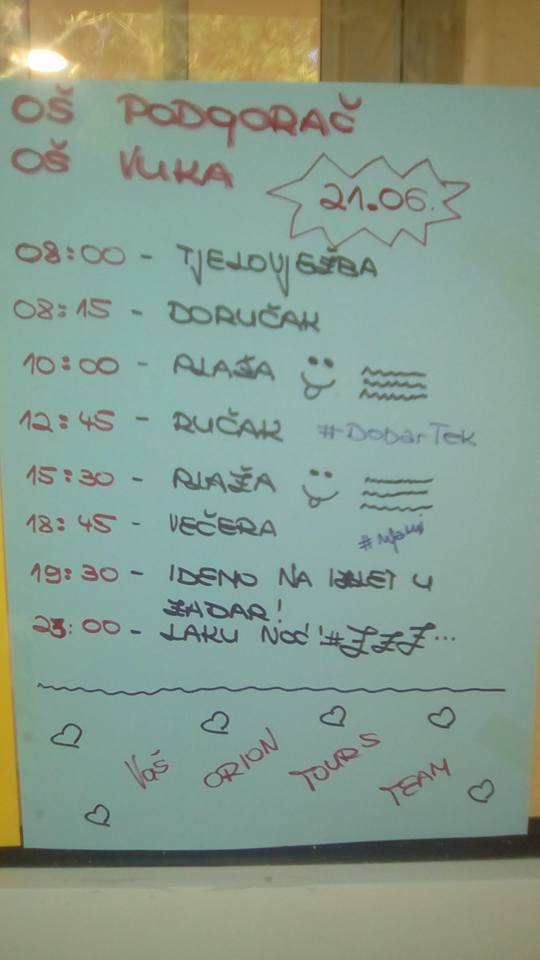 OŠ PODGORAČ
OŠ VUKA
21.06.
08:00 - TJELOVJEŽBA
08:15 - DORUČAK
10:00 - PLAŽA
12:45 - RUČAK #DobarTek
15:30 - PLAŽA
18:45 - VEČERA
#njami
19:30 - IDEMO NA IZLET U
ZADAR!
23:00 - LAKU NOĆ! #ZZZ...
Vaš ORION TOURS TEAM